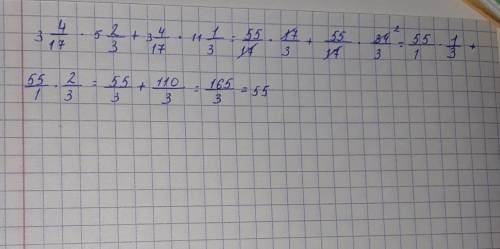 3 4/17 · 5 2/3 + 3 4/17 · 11 1/3 = 55/17 · 17/3 + 55/17 · 34/3 ² = 55/1 · 1/3 +
55/1 · 2/3 = 55/3 + 110/3 = 165/3 = 55